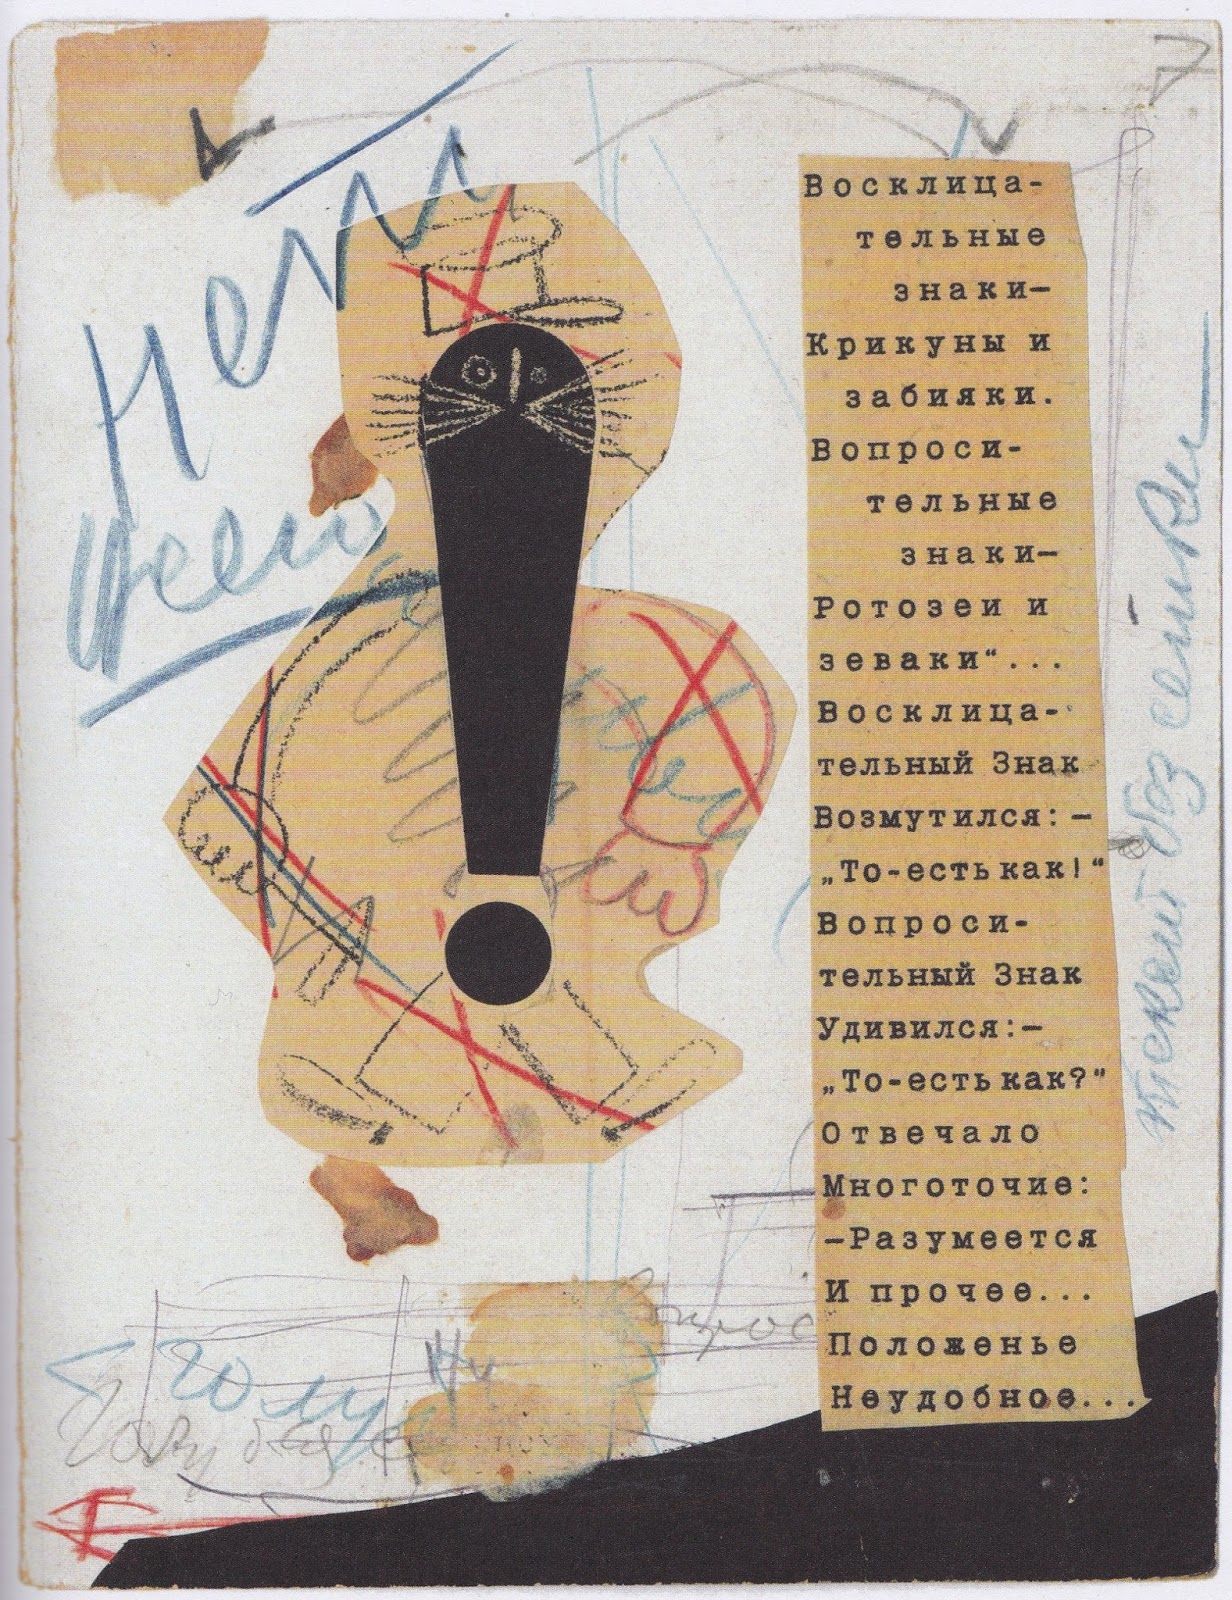 Нет
Восклица-
тельные
знаки—
Крикуны и
забияки.
Вопроси-
тельные
знаки—
Ротозеи и
зеваки“...
Восклица-
тельный Знак
Возмутился:—
„То-есть как!“
Вопроси-
тельный Знак
Удивился:—
„То-есть как?“
Отвечало
Многоточие:
—Разумеется
И прочее...
Положенье
Неудобное...
текст без сетки